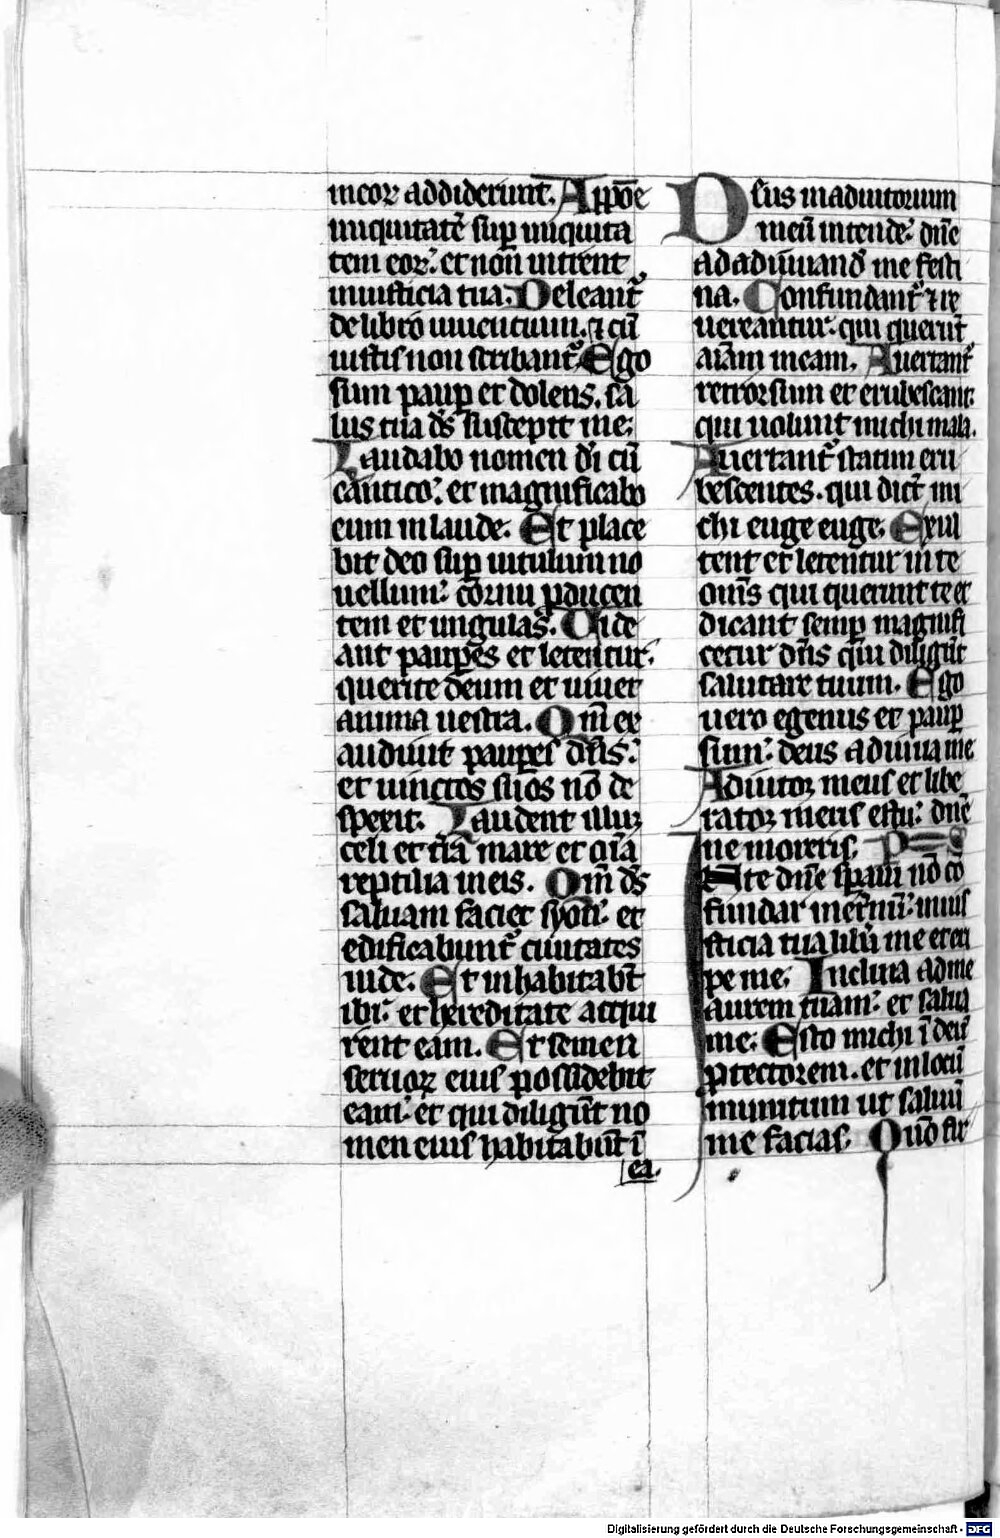 meoꝝ addiderunt. Appoe
iniquitatē sup iniquita
tem eoꝝ: et non intrent
iniusticia tua. Deleant᷑
de libro uiuentium. ⁊ cū
iustis non scribant᷑. Ego
sum paup et dolens. sa
lus tua ds̄ suscepit me:
Laudabo nomen dī cū
cantico: et magnificabo
eum in laude. Et place
bit deo sup uitulum no
uellum: cornu pducen
tem et ungulas. Uide
ant paupes et letentur:
querite deum et uiuet
anima uestra. Qm̄ ex
audiuit paupes dn̄s:
et uinctos suos nō de
spexit. Laudent illuꝫ
celi et tr̄a mare et om̄ia
reptilia in eis. Qm̄ ds̄
saluam faciet syon: et
edificabunt᷑ ciuitates
iude. Et inhabitabt̄
ibi: et hereditate acqui
rent eam. Et semen
seruoꝝ eius possidebit
eam: et qui diligūt no
men eius habitabūt ī
ea.
Dsus in adiutorium
meū intende: dn̄e
ad adiuuand᷑ me festi
na. Confundant᷑ ⁊ re
uereantur: qui querūt
aīam meam. Auertant᷑
retrorsum et erubescant:
qui uolunt michi mala.
Auertant᷑ statim eru
bescentes. qui dicūt mi
chi euge euge. Exul
tent et letentur in te
om̄s qui querunt te et
dicant semp magnifi
cetur dn̄s qui diligūt
salutare tuum. Ego
uero egenus et paup
sum: deus adiuua me
Adiutor meus et libe
rator meus es tu: dn̄e
ne moreris. Ps
Inte dn̄e spaui nō cō
fundar in et̄num: in ius
ticia tua libā me et eri
pe me. Inclina ad me
aurem tuam: et salua
me. Esto michi ī deū
ptectorem. et in locū
munitum ut saluū
me facias. Quō fir
Digitalisierung gefördert durch die Deutsche Forschungsgemeinschaft - DFG